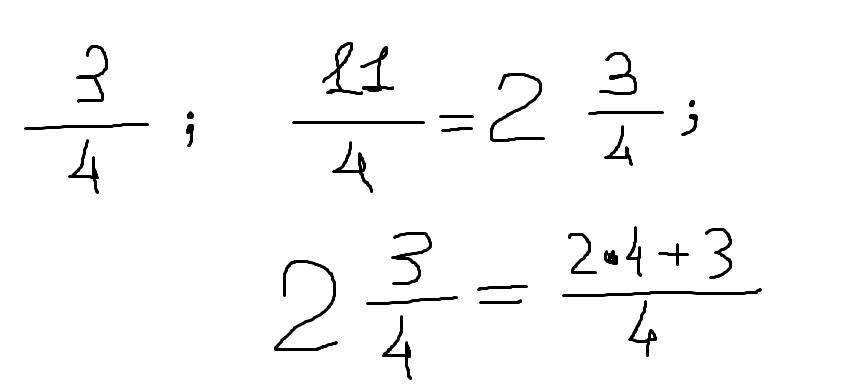 3/4 ; 11/4 = 2 3/4 ;
2 3/4 = 2·4+3/4